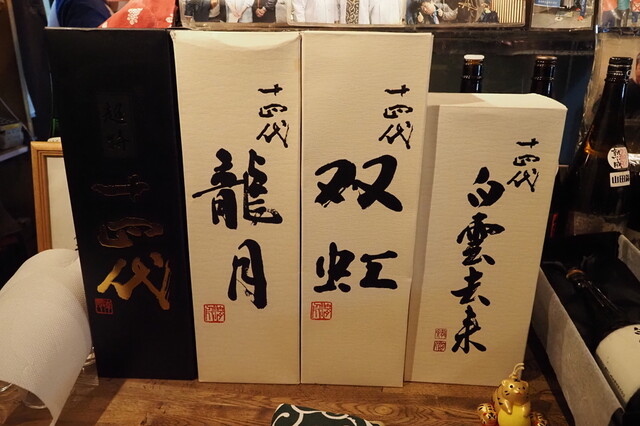 超特
十四代
十四代
龍月
十四代
双虹
十四代
白雲去来
山田錦